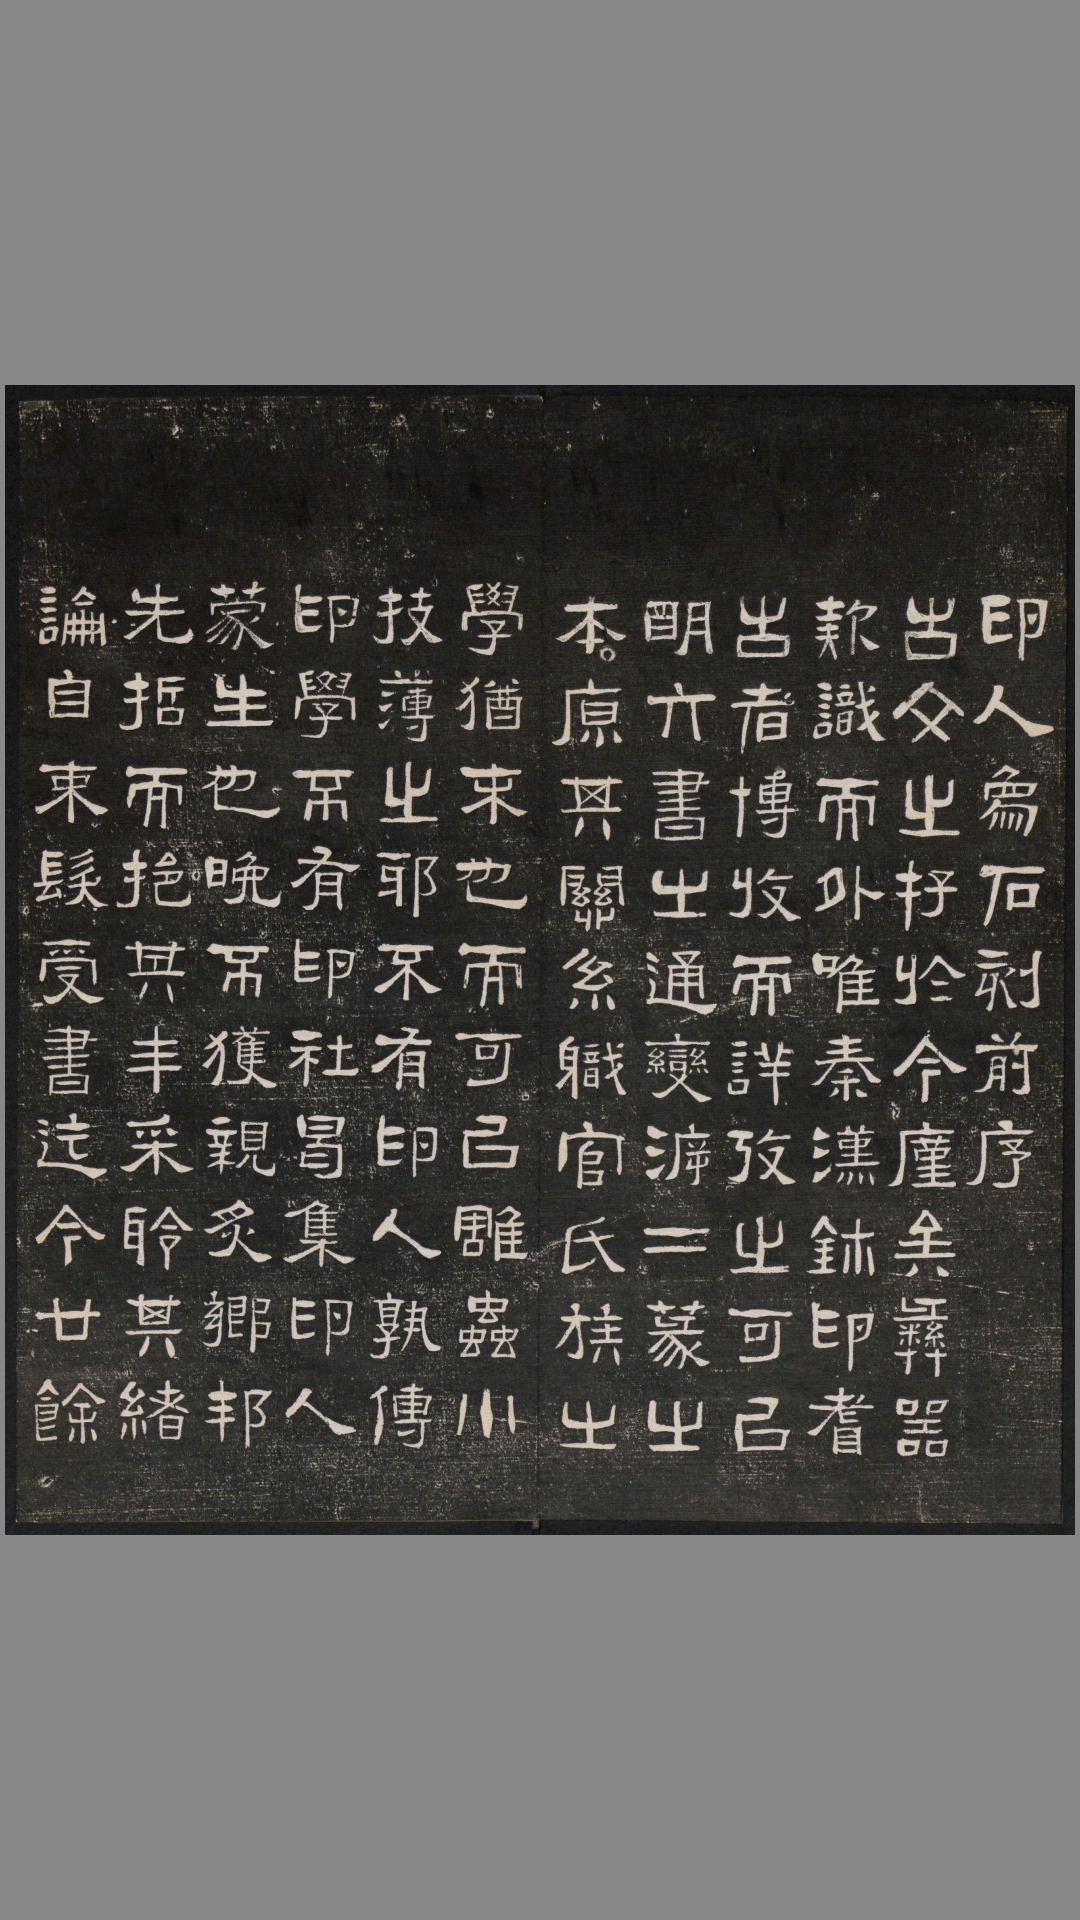 印人象石刻前序
古文之存於今廑矣彝器
款識而外唯秦漢鉥印耆
古者博收而詳攷之可㠯
朙六書之通變溯二篆之
本原其關系職官氏族之
學猶末也而可㠯雕蟲小
技薄之耶不有印人孰傳
印學不有印社曷集印人
蒙生也晚不獲親炙鄉邦
先哲而挹其丰采聆其緒
論自束髮受書迄今廿餘